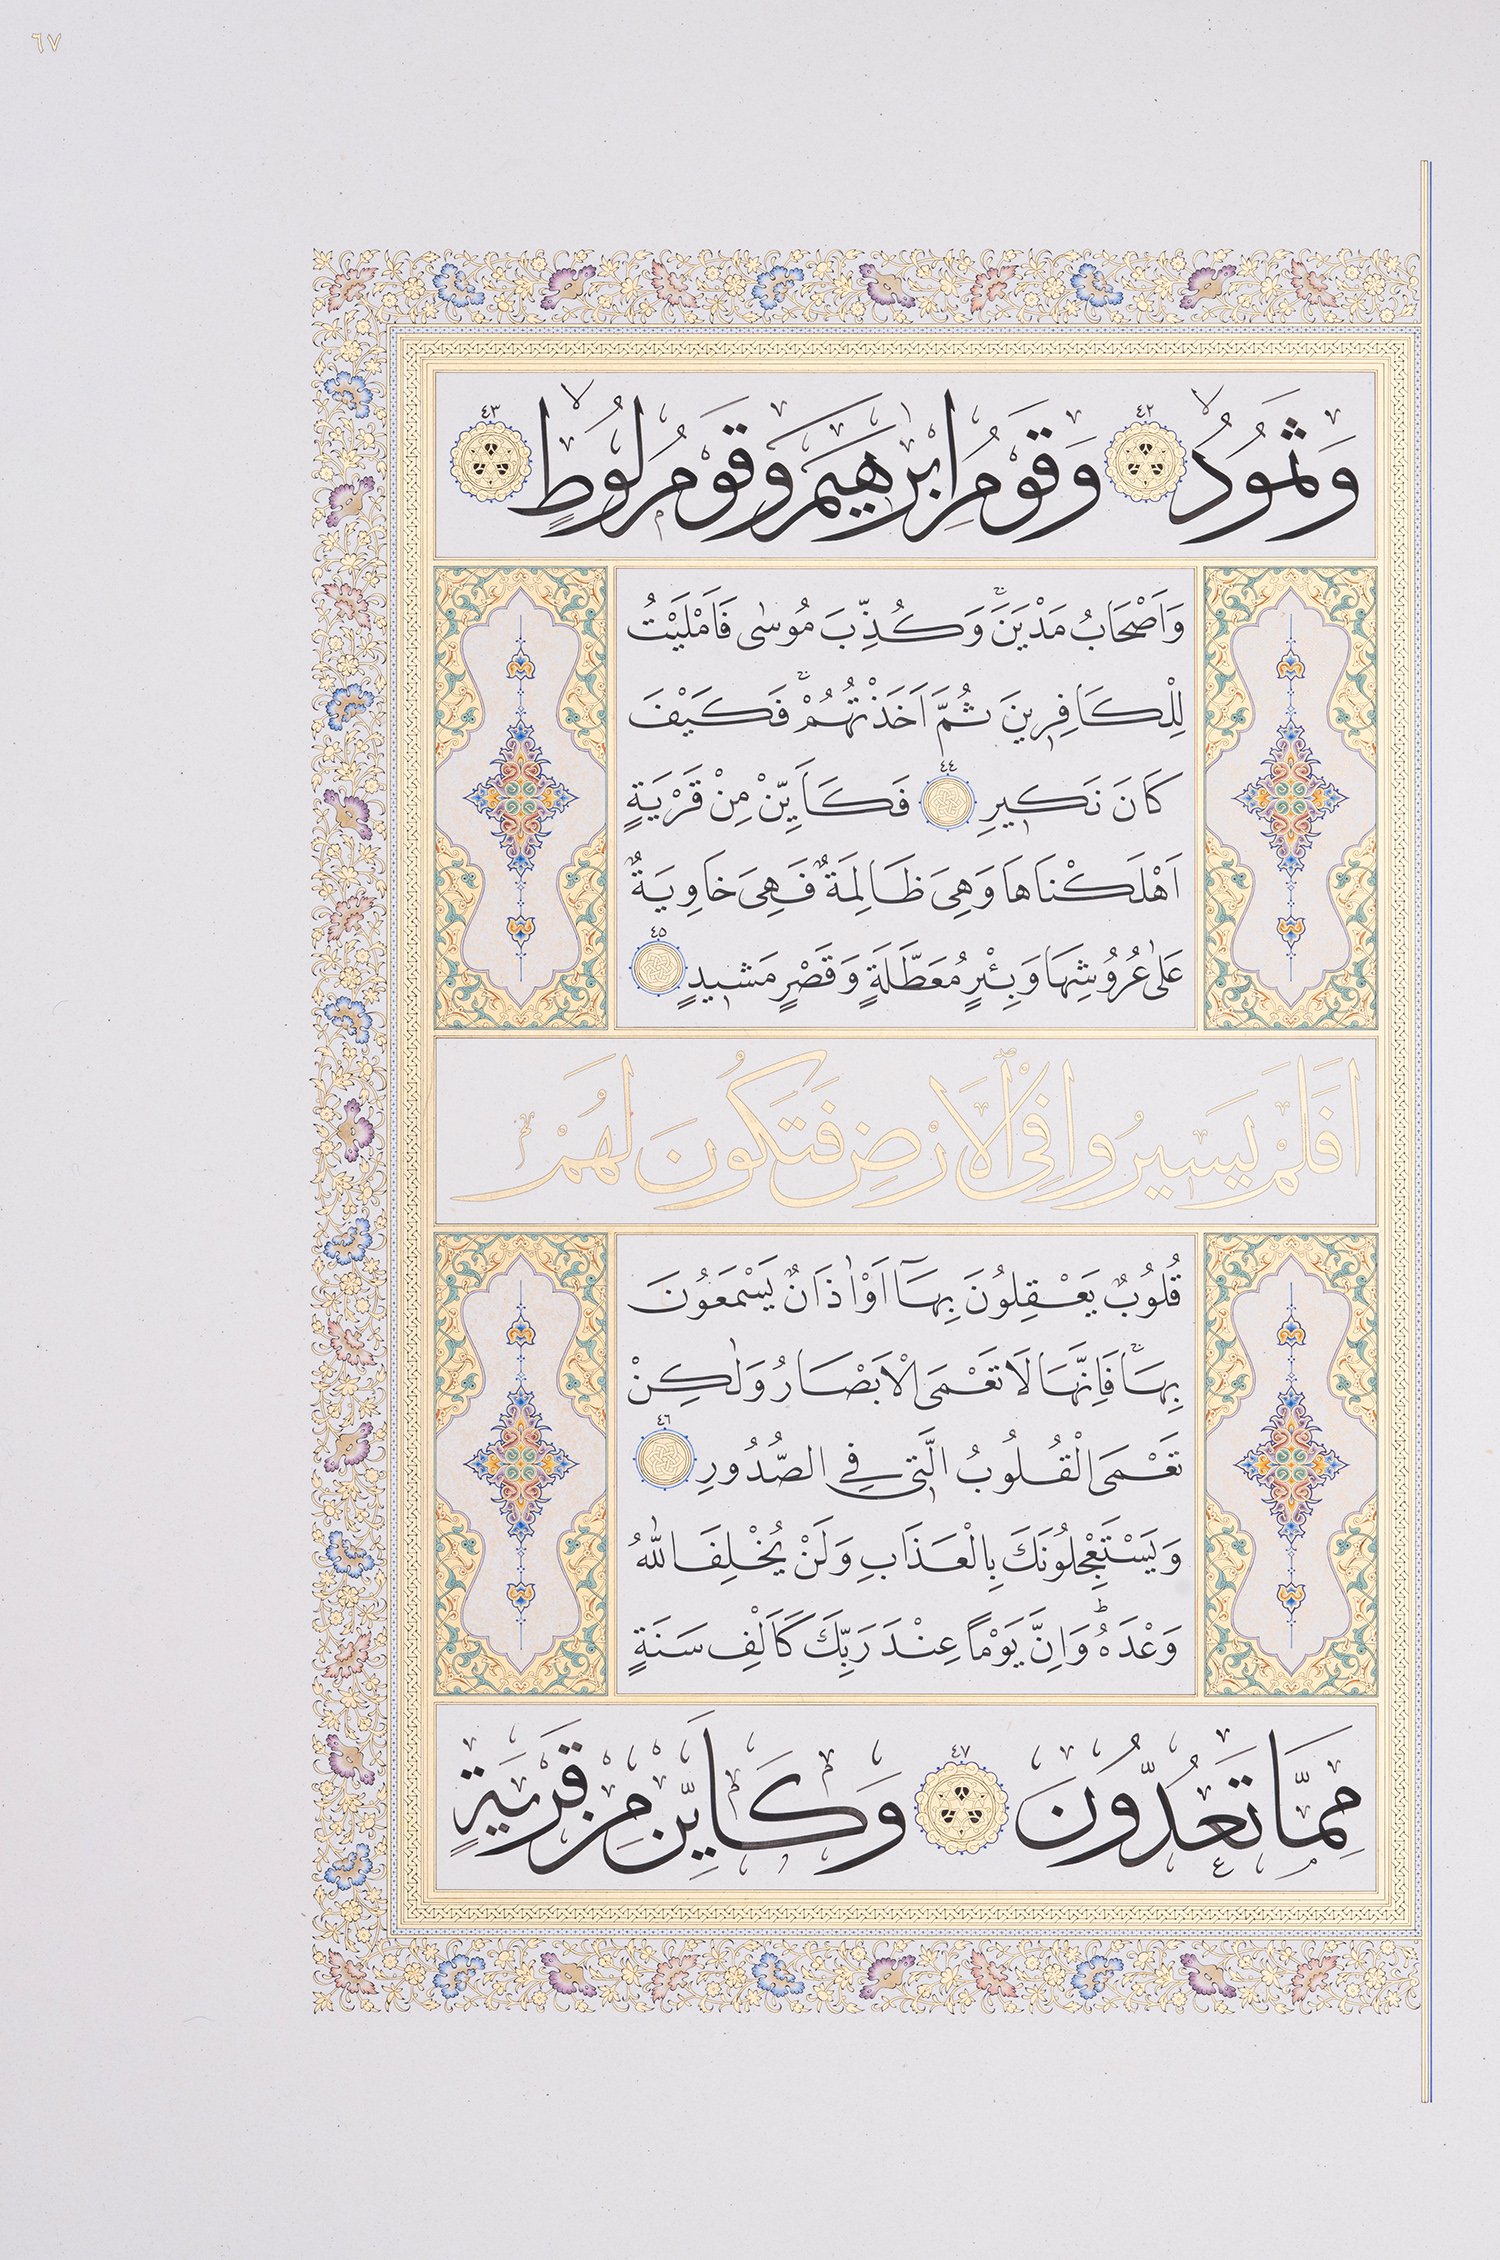 ٦٧
وَثَمُودُ ٤٢ وَقَوْمُ اِبْرٰهِيمَ وَقَوْمُ لُوطٍ ٤٣
وَاَصْحَابُ مَدْيَنَۚ وَكُذِّبَ مُوسٰى فَاَمْلَيْتُ
لِلْكَافِرِينَ ثُمَّ اَخَذْتُهُمْۚ فَكَيْفَ
كَانَ نَكِيرِ ٤٤ فَكَاَيِّنْ مِنْ قَرْيَةٍ
اَهْلَكْنَاهَا وَهِىَ ظَالِمَةٌ فَهِىَ خَاوِيَةٌ
عَلٰى عُرُوشِهَا وَبِئْرٍ مُعَطَّلَةٍ وَقَصْرٍ مَشِيدٍ ٤٥
اَفَلَمْ يَسِيرُوا فِى الْاَرْضِ فَتَكُونَ لَهُمْ
قُلُوبٌ يَعْقِلُونَ بِهَٓا اَوْ اٰذَانٌ يَسْمَعُونَ
بِهَاۚ فَاِنَّهَا لَا تَعْمَى الْاَبْصَارُ وَلٰكِنْ
تَعْمَى الْقُلُوبُ الَّتِى فِى الصُّدُورِ ٤٦
وَيَسْتَعْجِلُونَكَ بِالْعَذَابِ وَلَنْ يُخْلِفَ اللّٰهُ
وَعْدَهُۜ وَاِنَّ يَوْمًا عِنْدَ رَبِّكَ كَاَلْفِ سَنَةٍ
مِمَّا تَعُدُّونَ ٤٧ وَكَاَيِّنْ مِنْ قَرْيَةٍ